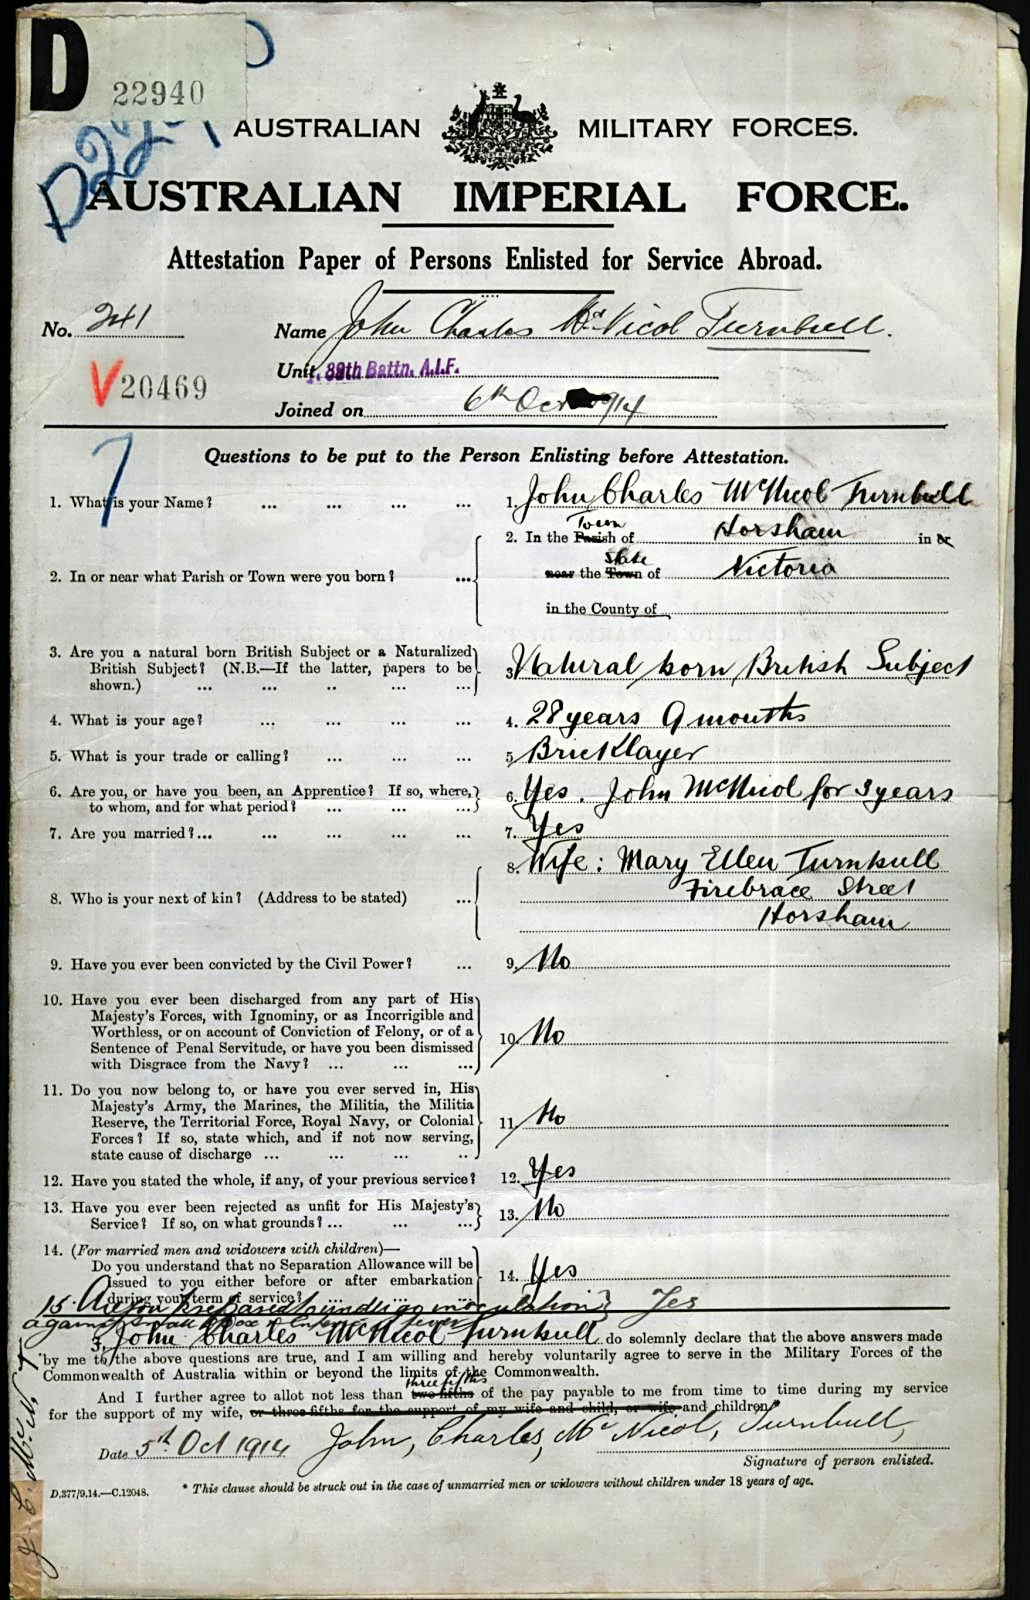 D
22940
D22940
AUSTRALIAN MILITARY FORCES.
AUSTRALIAN IMPERIAL FORCE.
Attestation Paper of Persons Enlisted for Service Abroad.
No. 241 Name John Charles McNicol Turnbull.
Unit 38th Battn. A.I.F.
V20469
Joined on 6th Oct 1914
7
Questions to be put to the Person Enlisting before Attestation.
1. What is your Name? ... ... ... ... 1. John Charles McNicol Turnbull
2. In or near what Parish or Town were you born? ... 2. In the Parish Town of Horsham in or
near the Town State of Victoria
in the County of
3. Are you a natural born British Subject or a Naturalized
British Subject? (N.B.—If the latter, papers to be
shown.) ... ... .. ... ... 3. Natural born British Subject
4. What is your age? ... ... ... ... 4. 28 years 9 months
5. What is your trade or calling? ... ... ... 5. Bricklayer
6. Are you, or have you been, an Apprentice? If so, where,
to whom, and for what period? ... ... ... 6. Yes. John McNicol for 3 years
7. Are you married?... ... ... ... ... 7. Yes
8. Who is your next of kin? (Address to be stated) ... 8. Wife: Mary Ellen Turnbull
Firebrace Street
Horsham
9. Have you ever been convicted by the Civil Power? ... 9. No
10. Have you ever been discharged from any part of His
Majesty's Forces, with Ignominy, or as Incorrigible and
Worthless, or on account of Conviction of Felony, or of a
Sentence of Penal Servitude, or have you been dismissed
with Disgrace from the Navy? ... ... ... 10. No
11. Do you now belong to, or have you ever served in, His
Majesty's Army, the Marines, the Militia, the Militia
Reserve, the Territorial Force, Royal Navy, or Colonial
Forces? If so, state which, and if not now serving,
state cause of discharge ... ... ... .. 11. No
12. Have you stated the whole, if any, of your previous service? 12. Yes
13. Have you ever been rejected as unfit for His Majesty's
Service? If so, on what grounds? ... ... ... 13. No
14. (For married men and widowers with children)—
Do you understand that no Separation Allowance will be
issued to you either before or after embarkation
during your term of service? ... ... ... 14. Yes
15. Are you prepared to undergo inoculation Yes
against small pox & enteric fever
I, John Charles McNicol Turnbull do solemnly declare that the above answers made
by me to the above questions are true, and I am willing and hereby voluntarily agree to serve in the Military Forces of the
Commonwealth of Australia within or beyond the limits of the Commonwealth.
And I further agree to allot not less than two-fifths three fifths of the pay payable to me from time to time during my service
for the support of my wife, or three-fifths for the support of my wife and child, or wife and children
Date 5th Oct 1914 John, Charles, McNicol, Turnbull,
Signature of person enlisted.
D.377/9.14.—C.12048. * This clause should be struck out in the case of unmarried men or widowers without children under 18 years of age.
J. C. McN. T.